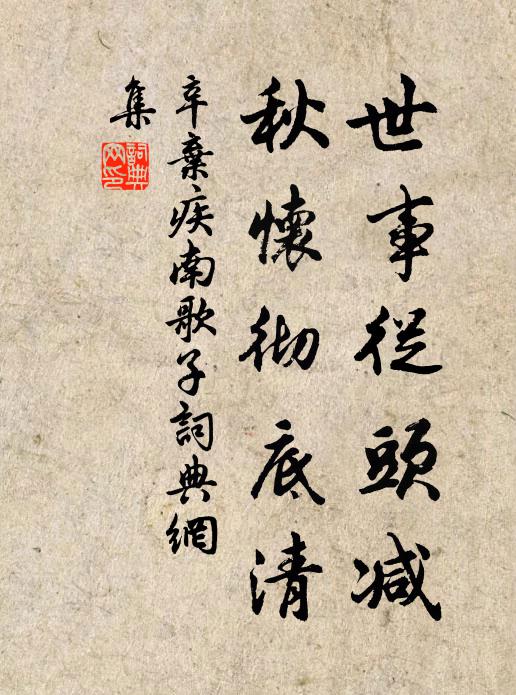 世事從頭减
秋懷彻底清
辛棄疾南歌子詞典網
集
詞典網印